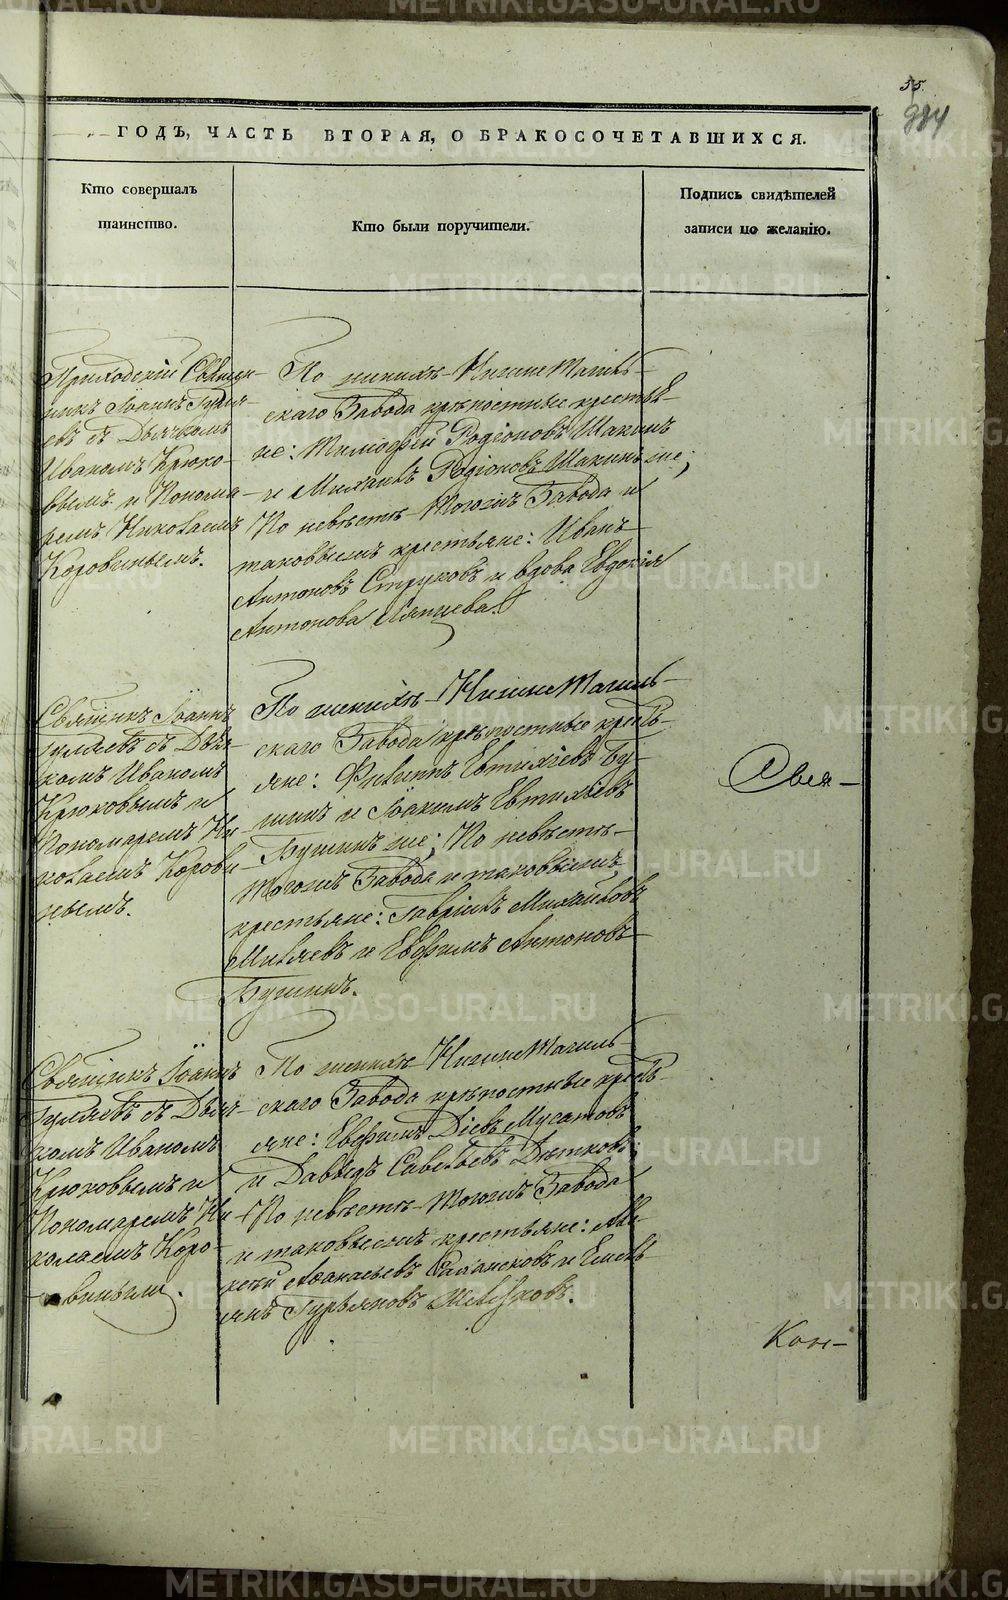 55.
984
ГОДЪ, ЧАСТЬ ВТОРАЯ, О БРАКОСОЧЕТАВШИХСЯ.
Кто совершалъ
таинство.
Кто были поручители.
Подпись свидѣтелей
записи по желанію.
Приходскій Священ-
никъ Іоаннъ Гуля-
евъ съ Дьячкомъ
Иваномъ Крюко-
вымъ и Понома-
ремъ Николаемъ
Коровинымъ.
По женихѣ Нижне Тагиль-
скаго Завода крѣпостные крестья-
не: Тимофей Родіоновъ Шакинъ
и Михаилъ Родіоновъ Шакинъ же;
По невѣстѣ Тогожъ Завода и
таковыежъ крестьяне: Иванъ
Антоновъ Струковъ и вдова Евдокія
Антонова Ляпцева.
Священикъ Іоаннъ
Гуляевъ съ Дьяч-
комъ Иваномъ
Крюковымъ и
Пономаремъ Ни-
колаемъ Корови-
нымъ.
По женихѣ Нижне Тагиль-
скаго Завода крѣпостные кресть-
яне: Филиппъ Евтихіевъ Бу-
шинъ и Іоакимъ Евтихіевъ
Бушинъ же; По невѣстѣ
Тогожъ Завода и таковыежъ
крестьяне: Гавріилъ Михайловъ
Миляевъ и Евфимъ Антоновъ
Бушинъ.
Свя-
Священикъ Іоаннъ
Гуляевъ съ Дьяч-
комъ Иваномъ
Крюковымъ и
Пономаремъ Ни-
колаемъ Коро-
винымъ.
По женихѣ Нижне Тагиль-
скаго Завода крѣпостные кресть-
яне: Евфимъ Діевъ Мусатовъ
и Давыдъ Савельевъ Дѣтковъ
По невѣстѣ Тогожъ Завода
и таковыежъ крестьяне: Але-
ксѣй Аѳанасьевъ и Емель-
янъ Гурьяновъ
Кон-
METRIKI.GASO-URAL.RU